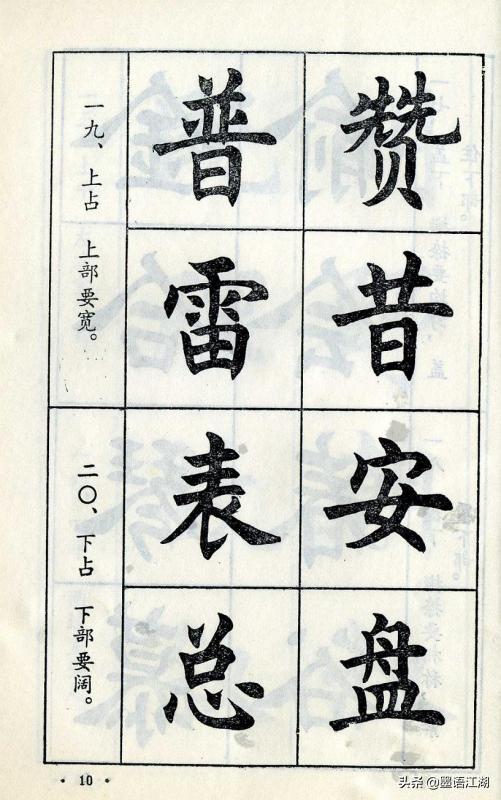 一九、上占 上部要宽。
普 赞
雷 昔
二〇、下占 下部要阔。
表 安
总 盘
10
头条 @墨语江湖